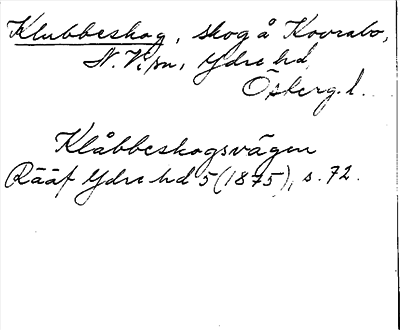 Klubbeskog, skog å Kovrabo,
N. Vi sn, Ydre hd,
Östergl.
Klåbbeskogsvägen
Rääf Ydre hd 5 (1875), s. 72.